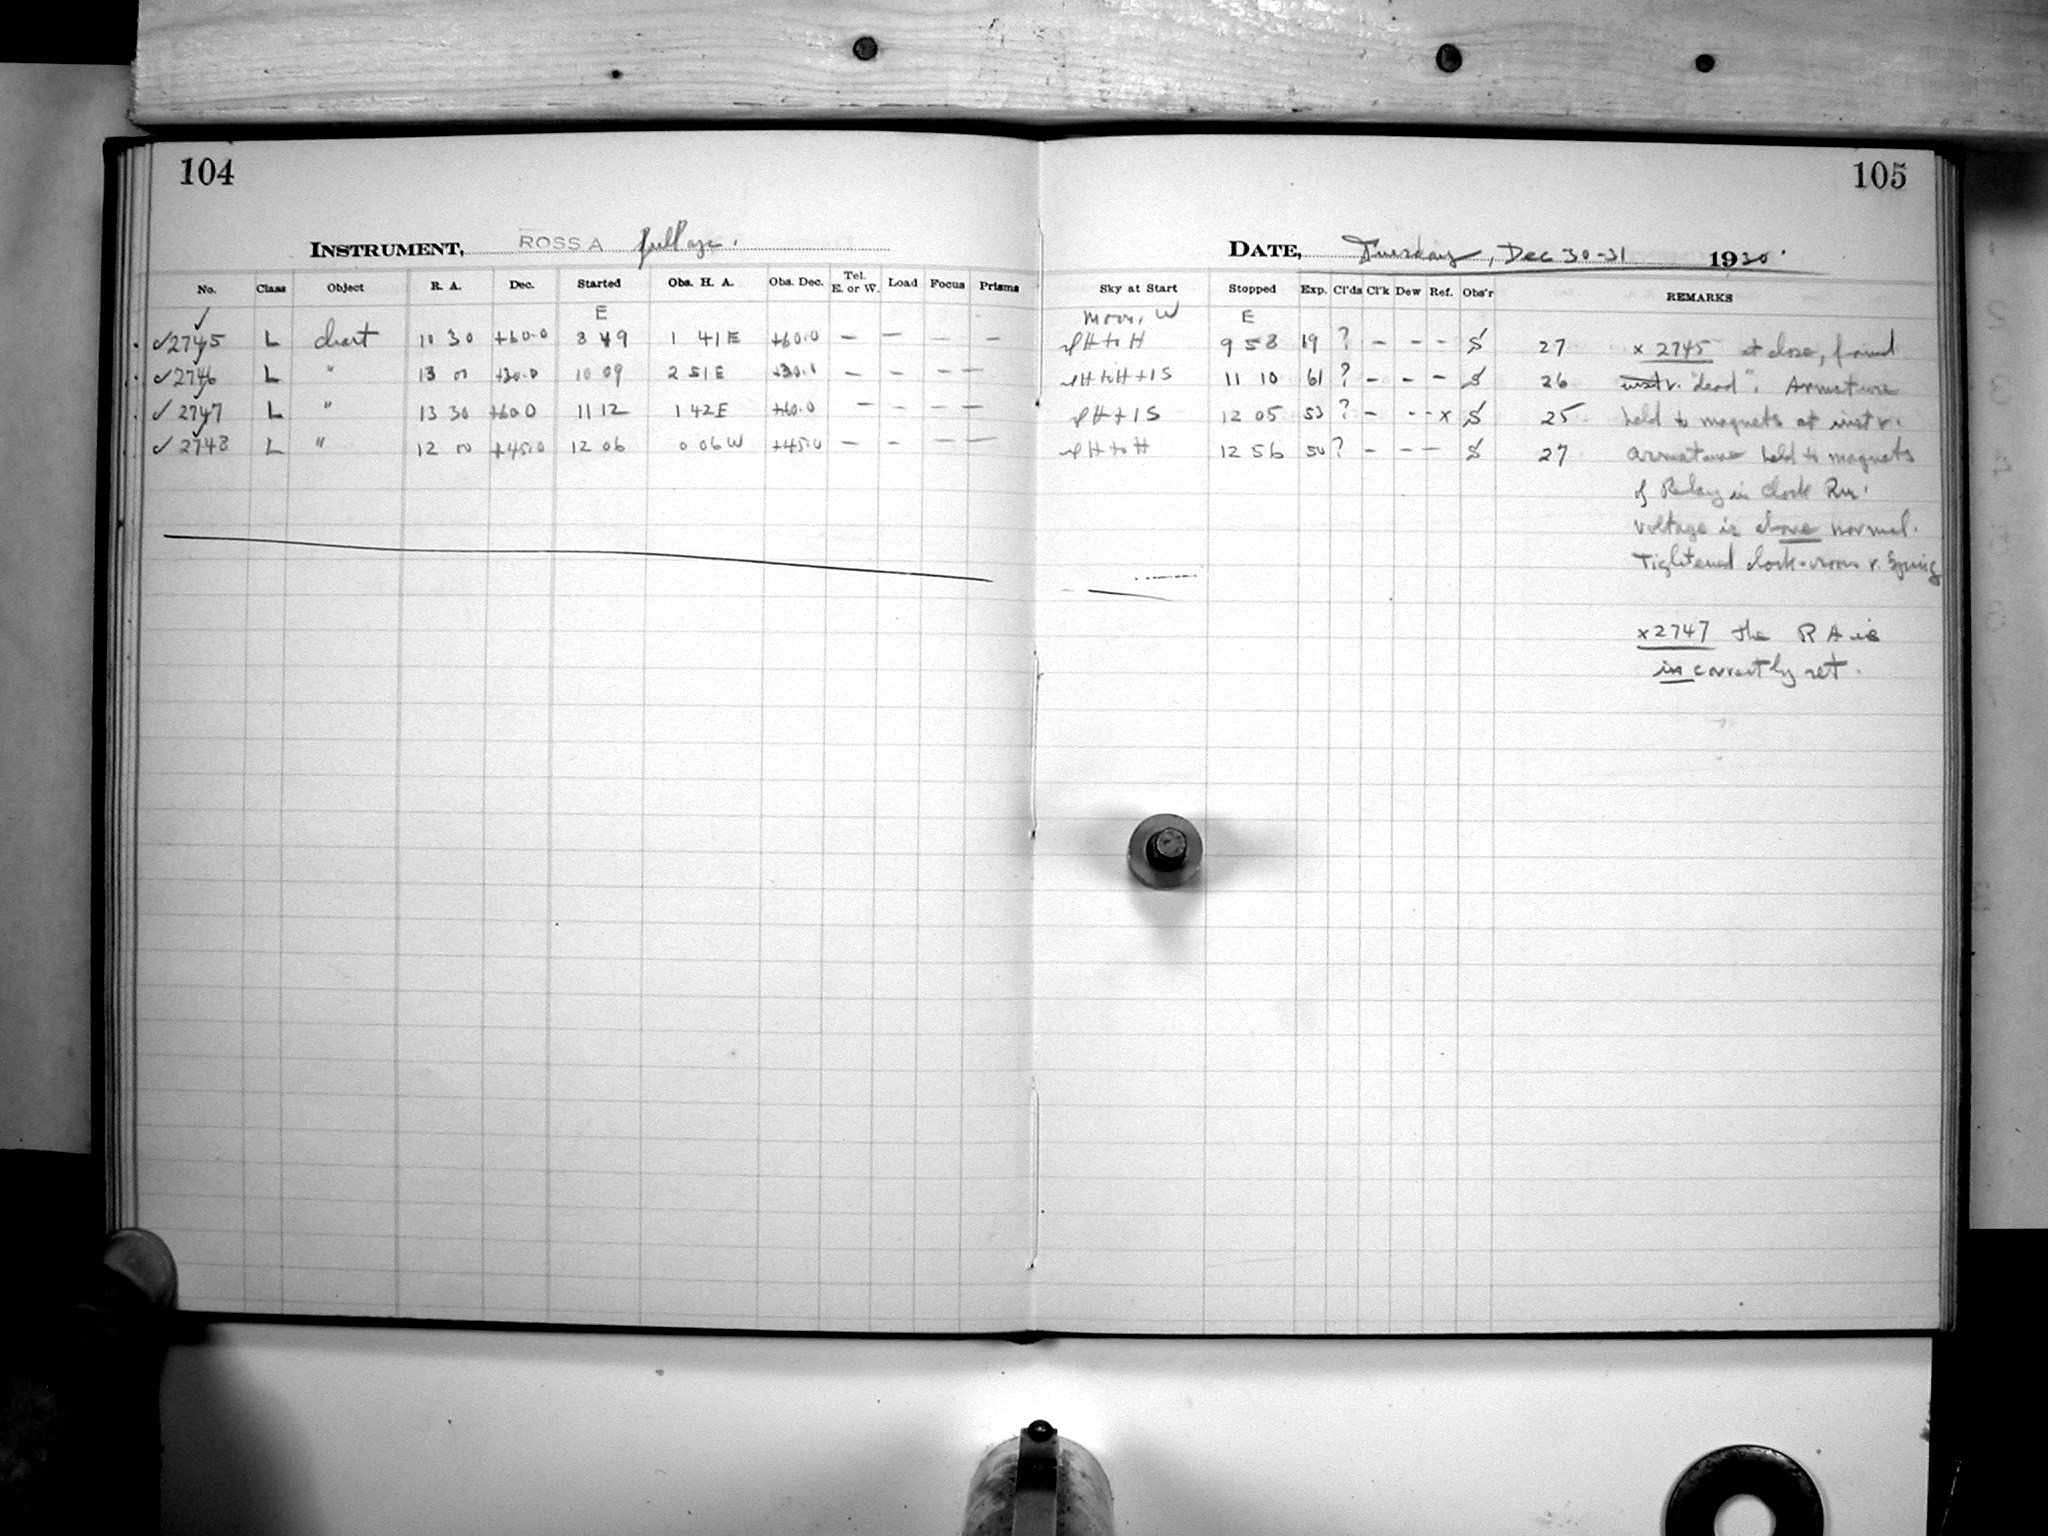 104
INSTRUMENT, ROSS A full ape.
No. Class Object R. A. Dec. Started Obs. H. A. Obs. Dec. Tel. E. or W. Load Focus Prisms
E
✓2745 L chart 11 30 +60.0 8 49 1 41 E +60.0 — — — —
✓2746 L " 13 00 +30.0 10 09 2 51 E +30.0 — — — —
✓2747 L " 13 30 +60.0 11 12 1 42 E +60.0 — — — —
✓2748 L " 12 00 +45.0 12 06 0 06 W +45.0 — — — —
105
DATE, Tuesday, Dec 30-31 1930.
Sky at Start Stopped Exp. Cl'ds Cl'k Dew Ref. Obs'r REMARKS
Moon, W E
H to H 9 58 19 ? - - - S 27 x 2745 at close, found
H to H + 1S 11 10 61 ? - - - S 26 instr. "dead". Armature
H + 1S 12 05 53 ? - - - x S 25 held to magnets at instr.
H to H 12 56 50 ? - - - S 27 armature held to magnets
of Relay in Clock Rm.
voltage is above normal.
Tightened clock-room r. Spring
x2747 the R A is
incorrectly set.